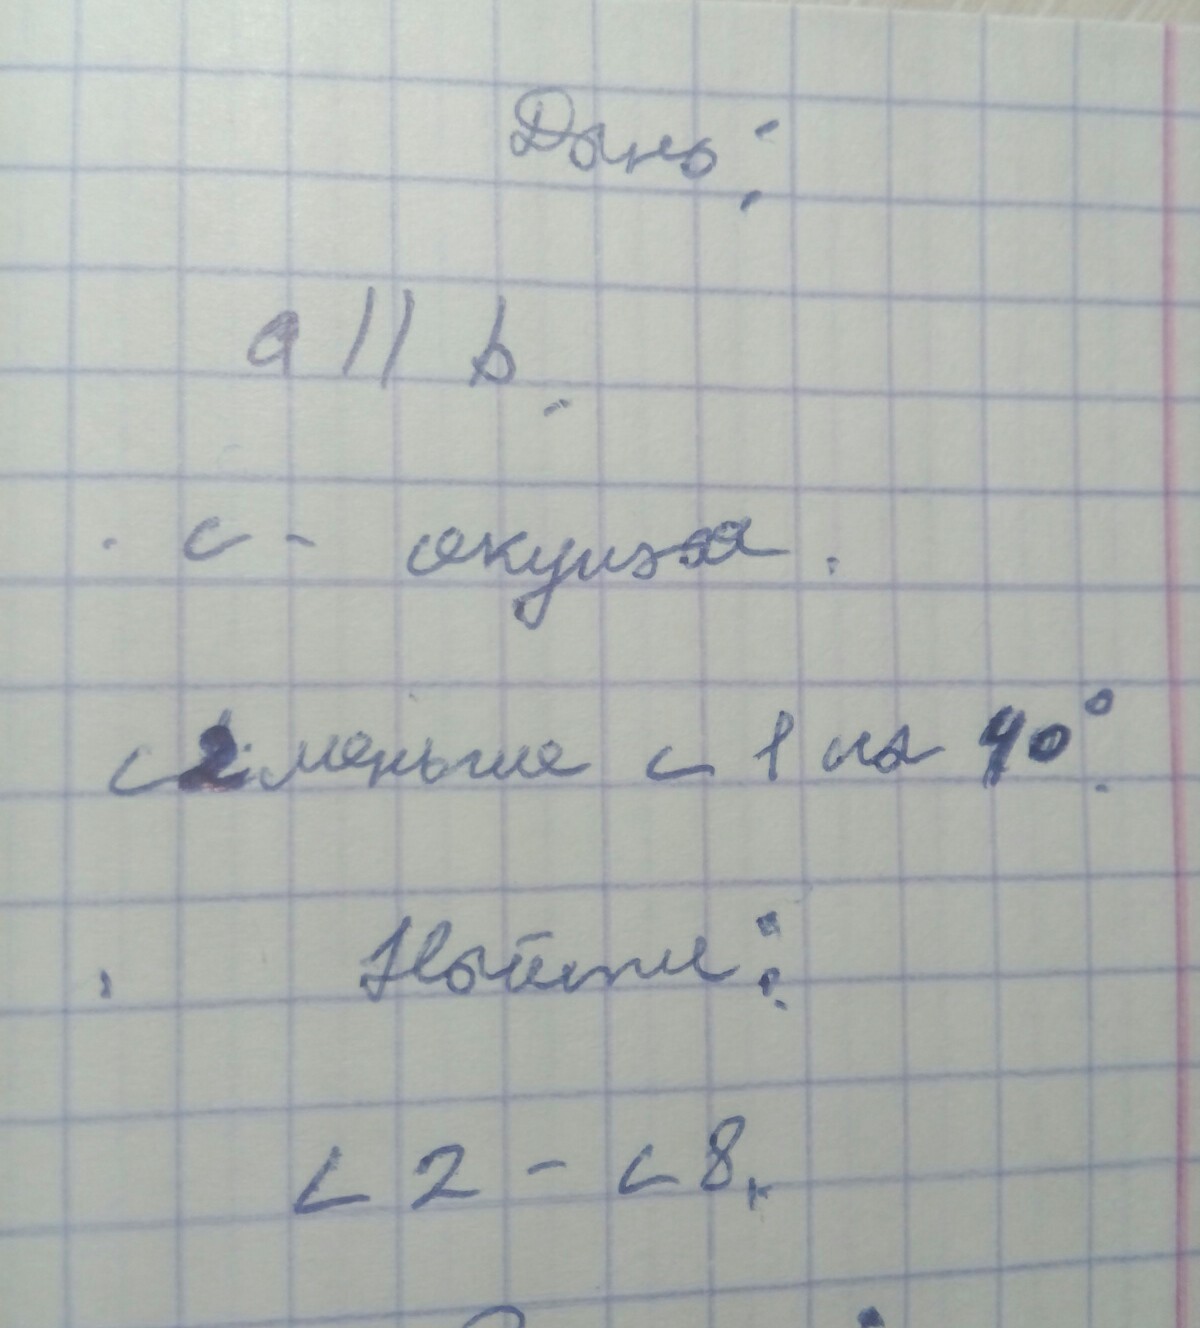 Дано:
a || b.
c - секущая.
∠2 меньше ∠1 на 40°.
Найти:
∠2 - ∠8.